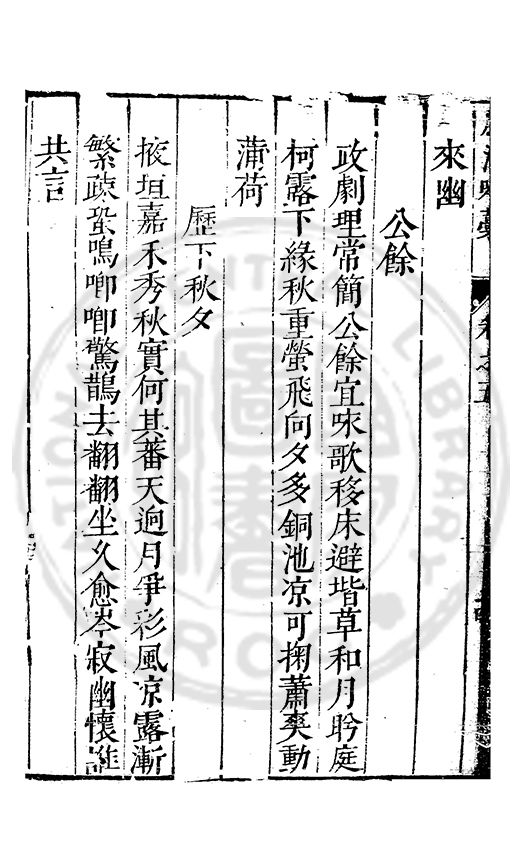 卷之五
來幽
公餘
政劇理常簡公餘宜咏歌移床避堦草和月聆庭
柯露下緣秋重螢飛向夕多銅池凉可掬蕭爽動
蒲荷
歷下秋夕
掖垣嘉禾秀秋實何其蕃天逈月爭彩風凉露漸
繁疎蛩鳴喞喞驚鵲去翻翻坐久愈岑寂幽懷誰
共言